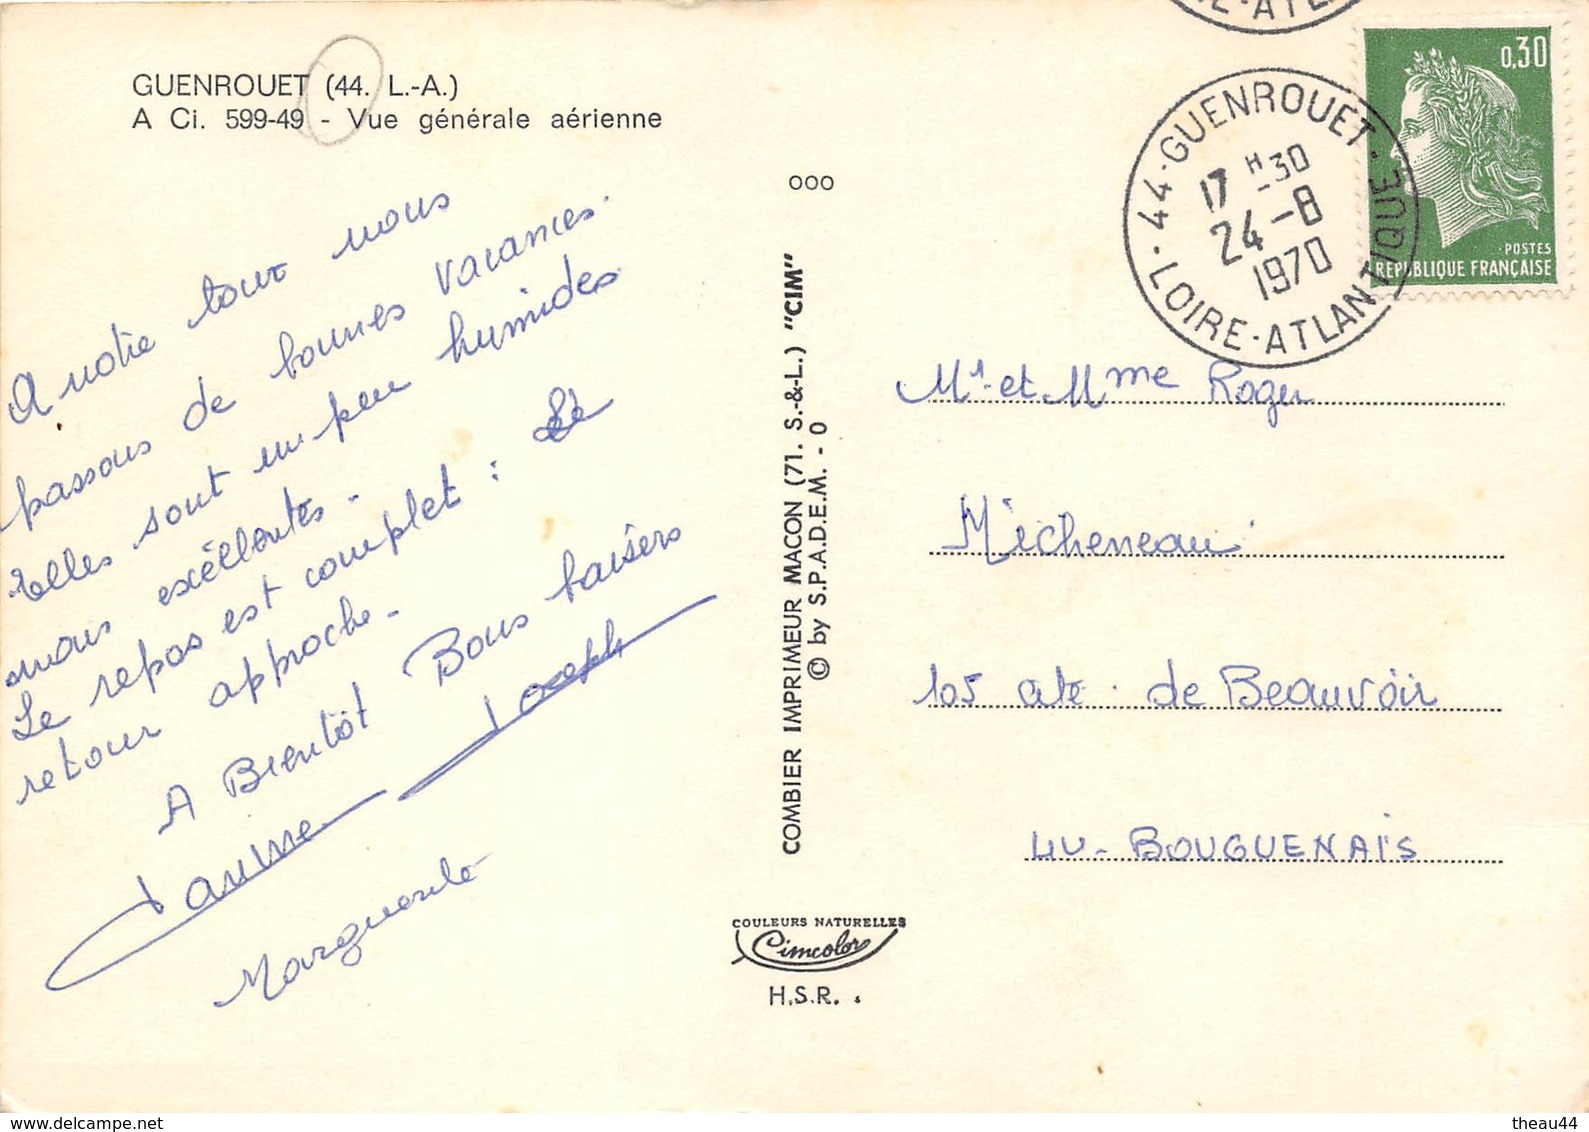 GUENROUET (44. L.-A.)
A Ci. 599-49 - Vue générale aérienne
A notre tour nous
passons de bonnes vacances.
Elles sont un peu humides
mais excéllentes -
Le repos est complet : Le
retour approche -
A Bientôt Bons baisers
Joseph
Marguerite
OOO
COMBIER IMPRIMEUR MACON (71. S.-&-L.) "CIM"
© by S.P.A.D.E.M. - O
COULEURS NATURELLES
Cimcolor
H.S.R.
IRE-ATLA
44-GUENROUET-
17 H 30
24-8
1970
· LOIRE-ATLANTIQUE
0,30
POSTES
REPUBLIQUE FRANÇAISE
Mr et Mme Roger
Micheneau
105 de Beauvoir
44- BOUGUENAIS
www.delcampe.net
theau44